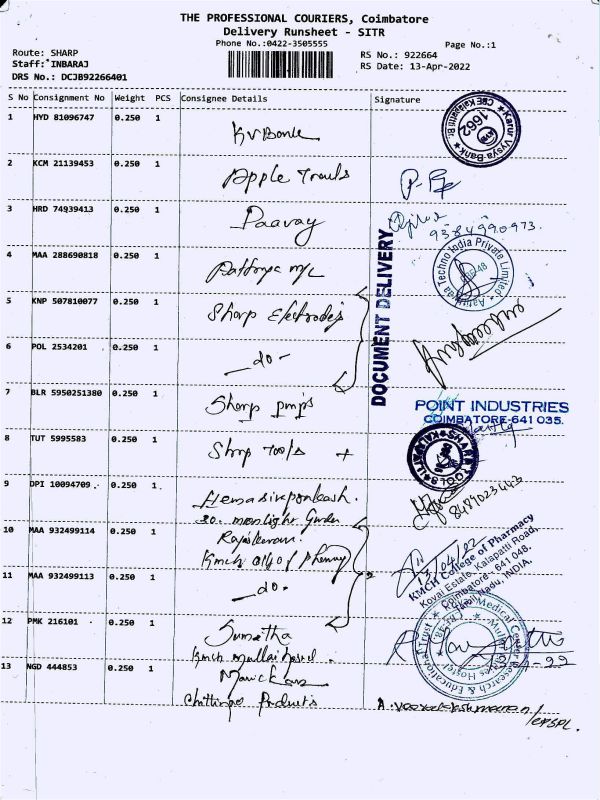 THE PROFESSIONAL COURIERS, Coimbatore
Delivery Runsheet - SITR
Phone No.:0422-3505555
Page No.:1
Route: SHARP
Staff: INBARAJ
DRS No.: DCJB92266401
RS No.: 922664
RS Date: 13-Apr-2022
S No Consignment No Weight PCS Consignee Details Signature
1 HYD 81096747 0.250 1 KV Bank
Karur Vysya Bank
CBE Kalapatti Br.
1662
2 KCM 21139453 0.250 1 Apple
3 HRD 74939413 0.250 1 Paavay
9384990973.
4 MAA 288690818 0.250 1
Techno India Private Limited
DOCUMENT DELIVERY
5 KNP 507810077 0.250 1 Sharp Electrodes
6 POL 2534201 0.250 1 - do -
7 BLR 5950251380 0.250 1 Sharp pumps
POINT INDUSTRIES
COIMBATORE-641 035.
8 TUT 5995583 0.250 1 Sharp Tools
SHARP TOOLS KALAPATTI
9 DPI 10094709 0.250 1 Hemasivaprakash.
20. Moonlight Garden
8489023443
10 MAA 932499114 0.250 1 Rajeswari
KMCH Cllg of Phmy
13/04/22
KMCH College of Pharmacy
Kovai Estate, Kalapatti Road,
Coimbatore - 641 048.
Tamil Nadu, INDIA.
11 MAA 932499113 0.250 1 - do -
12 PMK 216101 0.250 1 Sumatha
KMCH Mullai Hostel
Medical Center Research & Educational Trust
Mullai Hostel
13 NGD 444853 0.250 1 Manickam
Chettinad Products